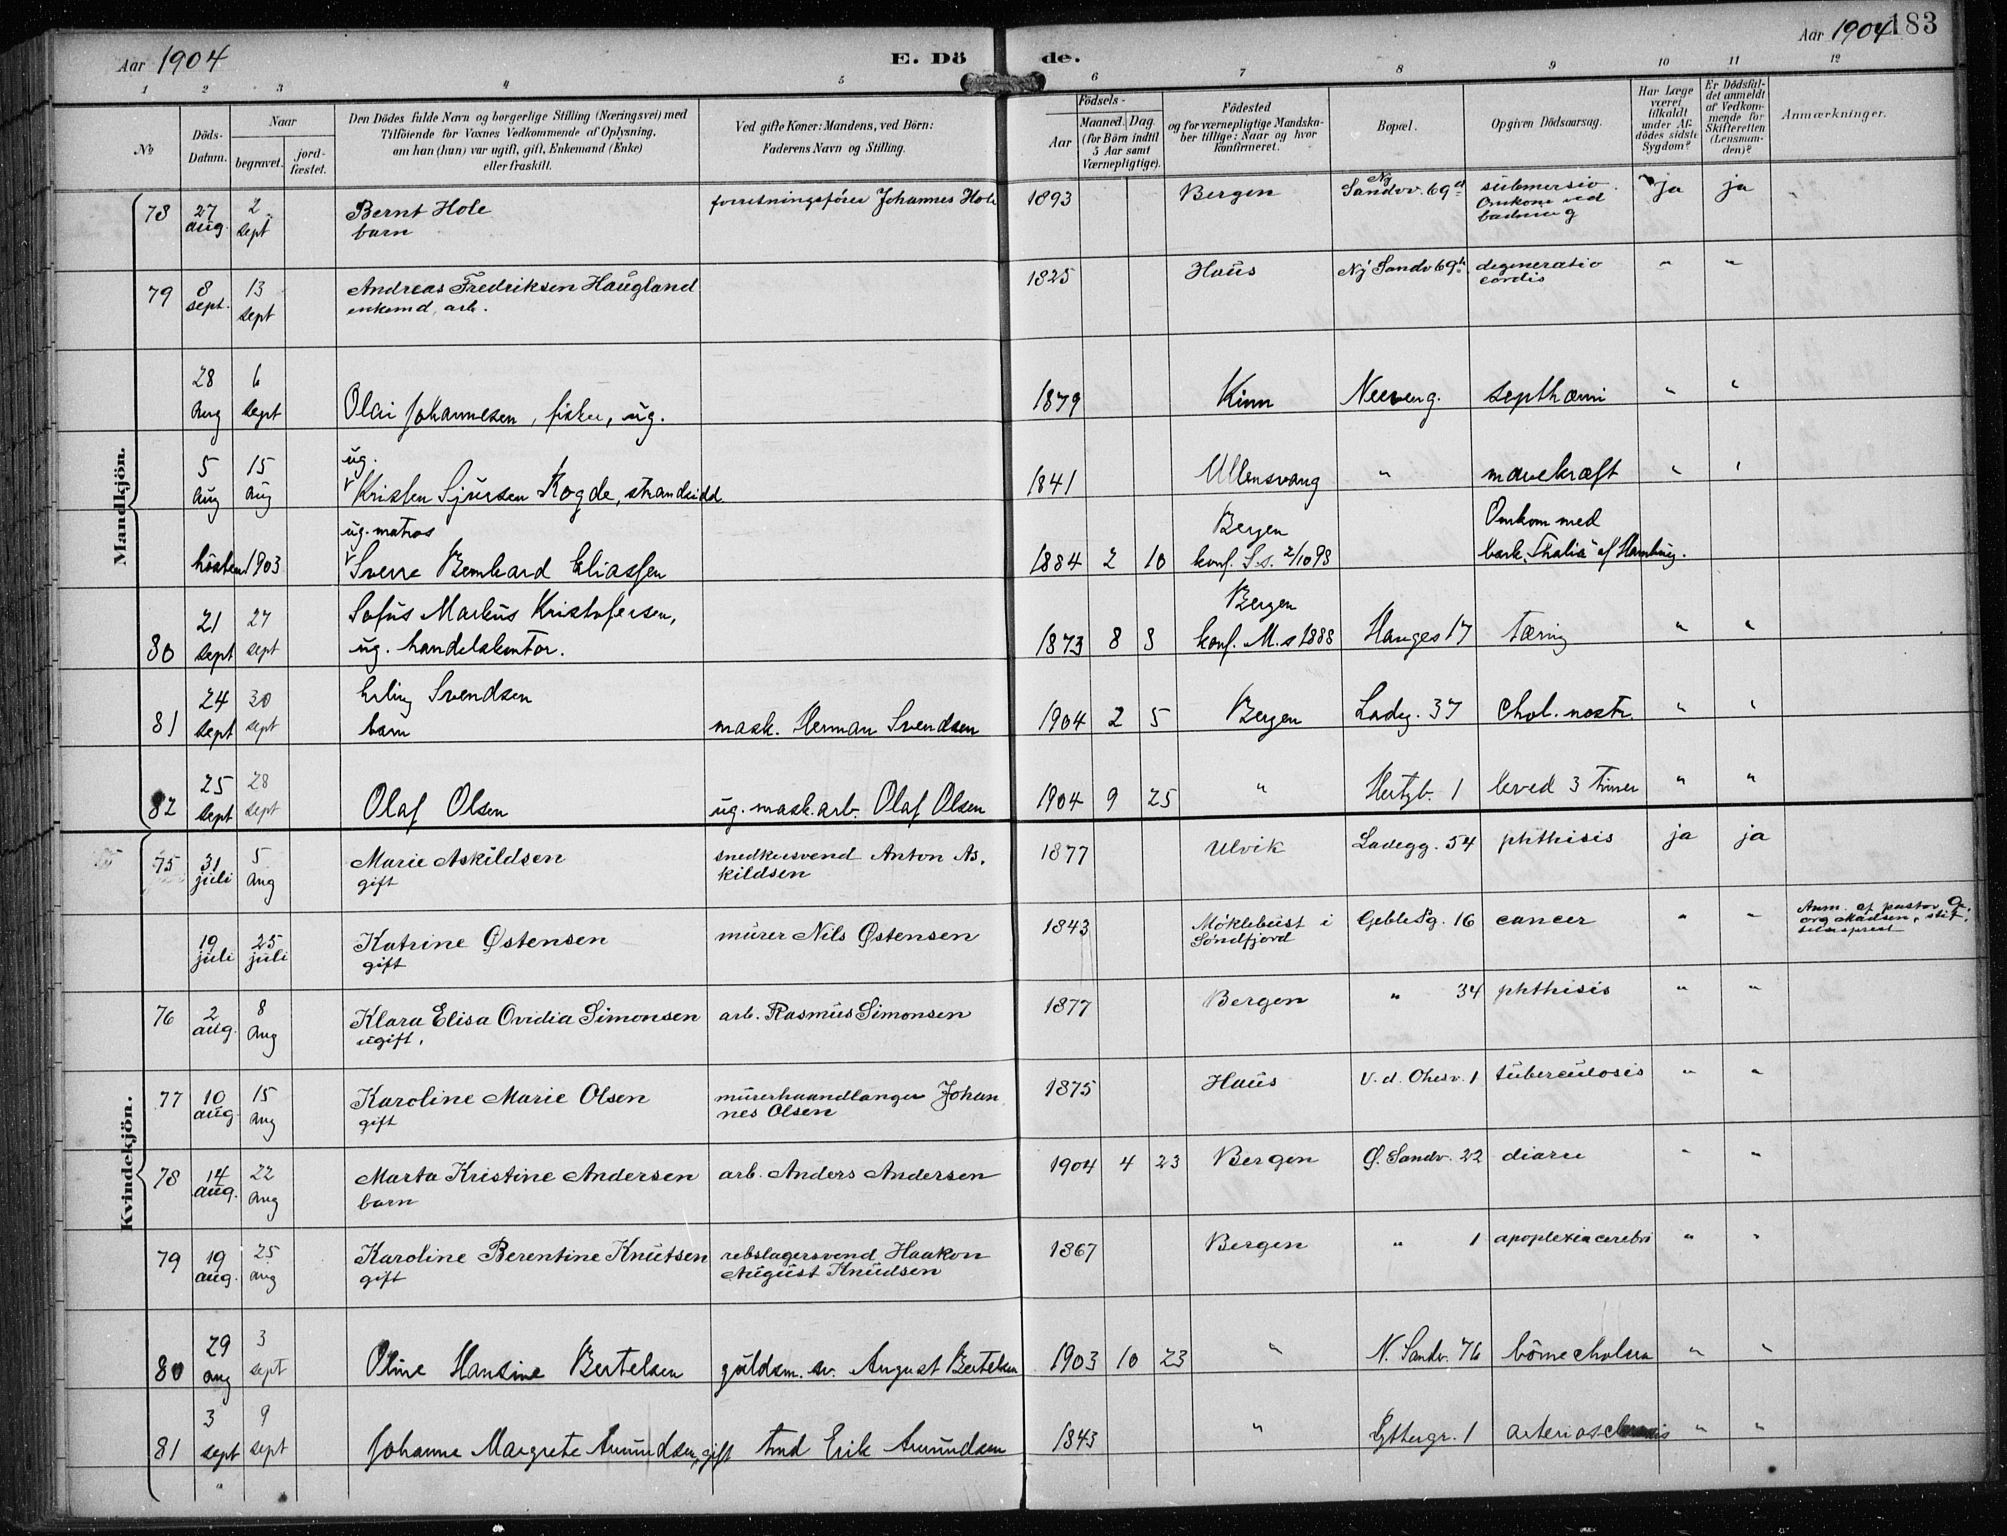 Aar 1904
E. Dö
de.
Aar 1904
183
1 2 3 4 5 6 7 8 9 10 11 12
No
Döds-Datum.
Naar
begravet.
jord-fæstet.
Den Dödes fulde Navn og borgerlige Stilling (Næringsvei) med
Tilföiende for Voxnes Vedkommende af Oplysning,
om han (hun) var ugift, gift, Enkemand (Enke)
eller fraskilt.
Ved gifte Koner: Mandens, ved Börn:
Faderens Navn og Stilling.
Födsels-
Aar
Maaned. Dag.
(for Börn indtil
5 Aar samt
Værnepligtige).
Födested
og for værnepligtige Mandska-
ber tillige: Naar og hvor
konfirmeret.
Bopæl.
Opgiven Dödsaarsag.
Har Læge
været
tilkaldt
under Af-
dödes sidste
Sygdom?
Er Dödsfal-
det anmeldt
af Vedkom-
mende for
Skifteretten
(Lensman-
den)?
Anmærkninger.
Mandkjön.
78 27 aug. 2 sept Bernt Hole barn forretningsfører Johannes Hole 1893 Bergen Ny Sandv. 69 submersio. Omkom ved badning ja ja
79 8 sept. 13 sept Andreas Fredriksen Haugland enkemd, arb. 1825 Haus Ny Sandv 69 degeneratio cordis " "
28 Aug 6 sept Olai Johannesen, fisker, ug. 1879 Kinn septhæmi " "
5 Aug 15 Aug ug. Kristen Sjursen Kogde, strandsidd 1841 Ullensvang " mavekræft " "
høsten 1903 ug. matros Sverre Bernhard Eliassen 1884 2 10 Bergen konf. S.s. 2/10 98 Omkom med bark "Thalia" af Hamburg.
80 21 sept 27 sept Sofus Markus Kristofersen, ug. handelskontor. 1873 8 8 Bergen konf. M.s 1888 Hauges 17 Tæring " "
81 24 sept 30 sept Erling Svendsen barn mask. Herman Svendsen 1904 2 5 Bergen Ladeg. 37 Chol. nostr. " "
82 25 sept 28 sept Olaf Olsen ug. mask. arb. Olaf Olsen 1904 9 25 " Hertzb. 1 leved 3 Timer " "
Kvindekjön.
75 31 juli 5 Aug Marie Askildsen gift snedkersvend Anton Askildsen 1877 Ulvik Ladegg. 54 phthisis ja ja
19 juli 25 juli Katrine Østensen gift murer Nils Østensen 1843 Møklebust i Søndfjord Geble Pg. 16 cancer " " Anm. af pastor Georg Madsen,
76 2 aug. 8 Aug Klara Elisa Ovidia Simonsen ugift, arb. Rasmus Simonsen 1877 Bergen " 34 phthisis " "
77 10 aug 15 Aug Karoline Marie Olsen gift murerhaandlanger Johannes Olsen 1875 Haus V. d. 1 tuberculosis " "
78 14 aug. 22 Aug Marta Kristine Andersen barn arb. Anders Andersen 1904 4 23 Bergen Ø. Sandv. 22 diaree " "
79 19 aug. 25 Aug Karoline Berentine Knutsen gift rebslagersvend Haakon August Knudsen 1867 Bergen " 1 apoplexia cerebri " "
80 29 Aug 3 sept Oline Hansine Bertelsen guldsm. sv. August Bertelsen 1903 10 23 " N. Sandv. 76 børnecholera " "
81 3 sept 9 sept Johanne Margrete Amundsen, gift Tmd Erik Amundsen 1843 " Lyttergr. 1 " "